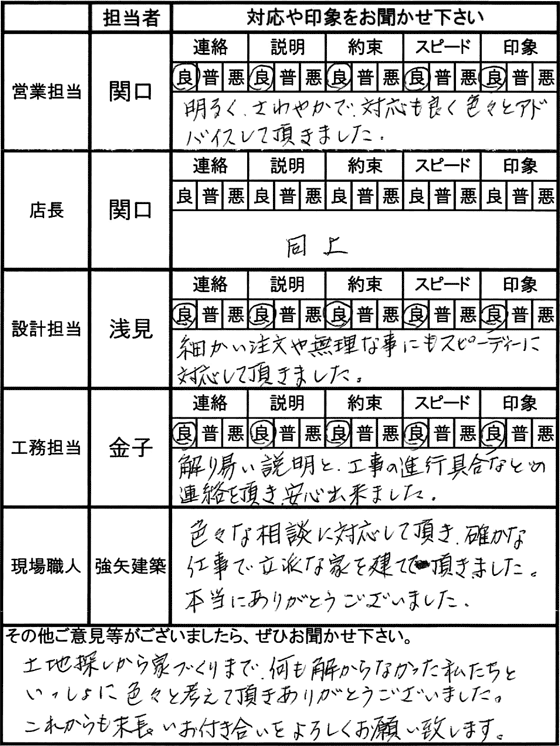 担当者 対応や印象をお聞かせ下さい
営業担当 関口
連絡 説明 約束 スピード 印象
良 普 悪 良 普 悪 良 普 悪 良 普 悪 良 普 悪
明るく、さわやかで、対応も良く色々とアド
バイスして頂きました。
店長 関口
連絡 説明 約束 スピード 印象
良 普 悪 良 普 悪 良 普 悪 良 普 悪 良 普 悪
同上
設計担当 浅見
連絡 説明 約束 スピード 印象
良 普 悪 良 普 悪 良 普 悪 良 普 悪 良 普 悪
細かい注文や無理な事にもスピーディーに
対応して頂きました。
工務担当 金子
連絡 説明 約束 スピード 印象
良 普 悪 良 普 悪 良 普 悪 良 普 悪 良 普 悪
解り易い説明と、工事の進行具合などの
連絡を頂き、安心出来ました。
現場職人 強矢建築
色々な相談に対応して頂き、確かな
仕事で立派な家を建てて頂きました。
本当にありがとうございました。
その他ご意見等がございましたら、ぜひお聞かせ下さい。
土地探しから家づくりまで、何も解からなかった私たちと
いっしょに色々と考えて頂きありがとうございました。
これからも末長いお付き合いをよろしくお願い致します。